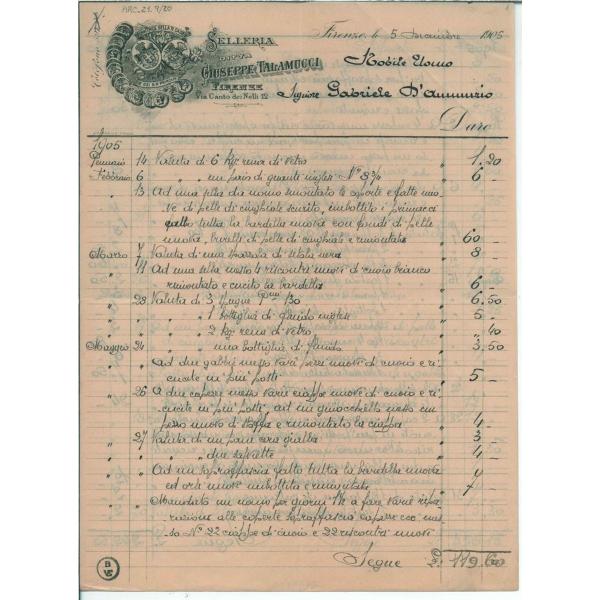 ARC.21.9/20
SELLERIA
DITTA
GIUSEPPE TALAMUCCI
FIRENZE
Via Canto dei Nelli 12
Firenze, li 5 Dicembre 1905
Nobile Uomo
Signore Gabriele D'Annunzio
Dare
1905
Gennaio 14 Valuta di 6 Kg. rena di vetro " 1,20
Febbraio 6 " un paio di guanti inglesi N° 8 3/4 " 6 -
" 13 Ad una sella da uomo smontato le coperte e fatte nuo
ve di pelle di cinghiale scurito, imbottito i primacci
fatto tutta la bardella nuova con fondi di pelle
nuova, di pelle di cinghiale e rimontata " 60 -
Marzo 7 Valuta di una di tela nera " 8 -
" 11 Ad una sella messo 4 riscontri nuovi di cuoio bianco
rimontato e cucito la bardella " 6 -
" 28 Valuta di 3 " 6,50
" " 1 bottiglia di fluido inglese " 5 -
" " 2 Kg. rena di vetro " " 40
Maggio 24 " una bottiglia di fluido " 3,50
" Ad due gabbie messo vari pezzi nuovi di cuoio e ri
cucite in più posti " 5 -
" 26 A due messo varie ciappe nuove di cuoio e ri
cucite in più posti, ad un ginocchello messo un
pezzo nuovo di stoffa e rimontato la ciappa " 4 -
" 27 Valuta di un pane cera gialla " 3
" " due " 4 -
" Ad un sopraffascia fatto tutta la bardella nuova
ed ora nuove imbottita e rimontata " 7 -
" Mandato un uomo per giorni 1 1/2 a fare varie ripa
razioni alle coperte sopraffascie ecc. mes
so N° 22 ciappe di cuoio e 22 riscontri nuovi
Segue £. 119.60
B
VE